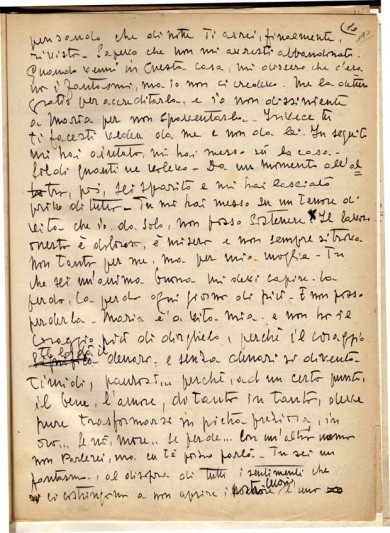 pensando che di notte ti avrei, finalmente,
rivisto. Sapevo che non mi avresti abbandonato.
Quando venni in questa casa, mi dissero che c'era
no i fantasmi, ma io non ci credevo. Me la dettero
gratis per accreditarla, e io non dissi niente
a Maria per non spaventarla. Invece tu
ti facesti vedere da me e non da lei. In seguito
mi hai aiutato, mi hai messo su la casa.
Soldi quanti ne volevo. Da un momento all'al
tro, poi, sei sparito e mi hai lasciato
privo di tutto. Tu mi hai messo in un tenore di
vita che io, da solo, non posso sostenere. Il lavoro
onesto è doloroso, è misero e non sempre si trova
non tanto per me, ma per mia moglie. Tu
che sei un'anima buona mi devi capire. La
perdo, la perdo ogni giorno di più. E non posso
perderla. Maria è la vita mia. e non ho il
coraggio più di dirglielo, perché il coraggio
te lo dà il denaro. e senza denari si diventa
timidi, paurosi... perché, ad un certo punto,
il bene, l'amore, di tanto in tanto, deve
pure trasformarsi in pietra preziosa, in
oro... Se no, more... Se perde... Con un altro uomo
non parlerei, ma cu te posso parlà. Tu sei un
fantasma, al disopra di tutti i sentimenti che
ci costringono a non aprire i nostri cuori l'uno